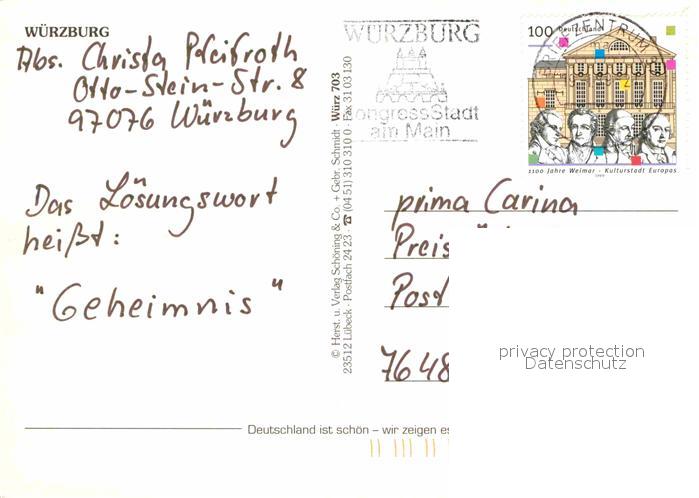 WÜRZBURG
Abs. Christa Pfeifroth
Otto-Stein-Str. 8
97076 Würzburg
Das Lösungswort
heißt:
"Geheimnis"
© Herst. u. Verlag Schöning & Co. + Gebr. Schmidt · Würz 703
23512 Lübeck · Postfach 24 23 · ☎ (04 51) 310 310 0 · Fax 31 03 130
WÜRZBURG
KongressStadt
am Main
BRIEFZENTRUM
100 Deutschland
1100 Jahre Weimar · Kulturstadt Europas
1999
prima Carina
Preis
Post
7648
privacy protection
Datenschutz
Deutschland ist schön – wir zeigen es